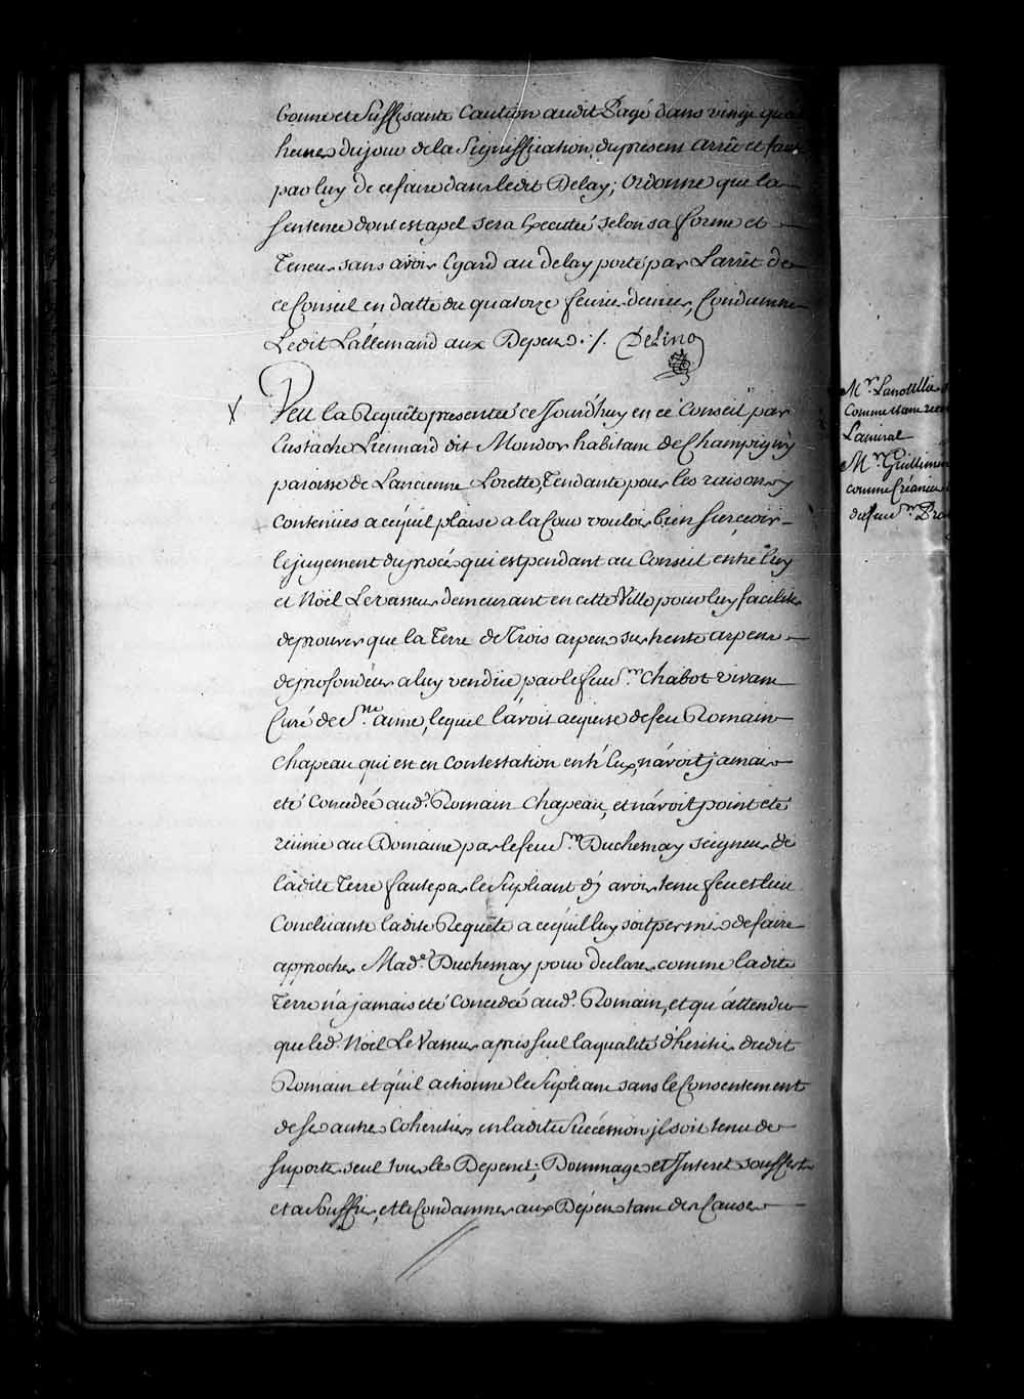 bonne et Suffisante Caution audit Pagé dans vingt
heures du jour de la Signiffication du present arrêt et faute
par luy de ce faire dans ledit Delay; Ordonne que la
Sentence dont est apel sera Executée selon sa forme et
Teneur sans avoir Egard au delay porté par L'arrêt de
ce Conseil en datte du quatorze fevrier dernier, Condamne
Ledit Lallemand aux Depens ./. DeLino
Veu la Requête presentée ce Jourd'huy en ce Conseil par
Eustache Liennard dit Mondor habitant de Champigny
paroisse de Lancienne Lorette, Tendante pour les raisons y
contenües a ce qu'il plaise a la Cour vouloir bien surceoir
le jugement du procés qui est pendant au Conseil entre luy
et Noël Levasseur demeurant en cette Ville pour luy faciliter
de prouver que la Terre de Trois arpens sur trente arpens
de profondeur a luy vendüe par le feu Sr. Chabot vivant
Curé de Ste. anne, lequel l'avoit acquise de feu Romain
Chapeau qui est en Contestation entr'Eux, n'avoit jamais
eté Concedée aud. Romain Chapeau, et n'avoit point eté
réunie au Domaine par le feu Sr. Duchesnay seigneur de
ladite Terre faute par le Supliant d'y avoir tenu feu et lieu
Concluante ladite Requête a ce qu'il luy soit permis de faire
approcher Made. Duchesnay pour declarer comme ladite
Terre n'a jamais eté Concedée aud. Romain, et qu'attendu
que led. Noël Le Vasseur a pris seul la qualité d'heritier dudit
Romain et qu'il actionne le Supliant sans le Consentement
de ses autres Coheritiers en ladite Succession il soit tenu de
suporter seul tous les Depens, Dommages et Interets soufferts
et a Souffrir, et le Condamner aux Dépens tant des Causes
Mr. Lanoullier
Comme
Lamiral
Mr. Guillimin
comme Créancier
du feu Sr.